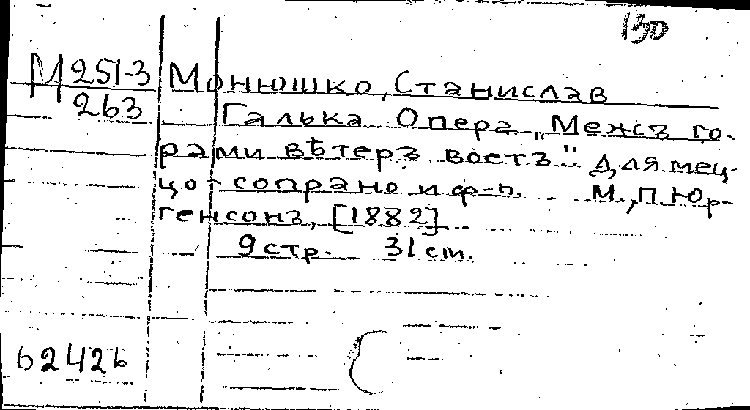 130
М 251-3 Монюшко, Станислав
263 Галька Опера „Межъ го-
рами вѣтеръ воетъ" Для мец-
цо-сопрано и ф-п. М., П. Юр-
генсонъ, [1882]
9 стр. 31 см.
62426